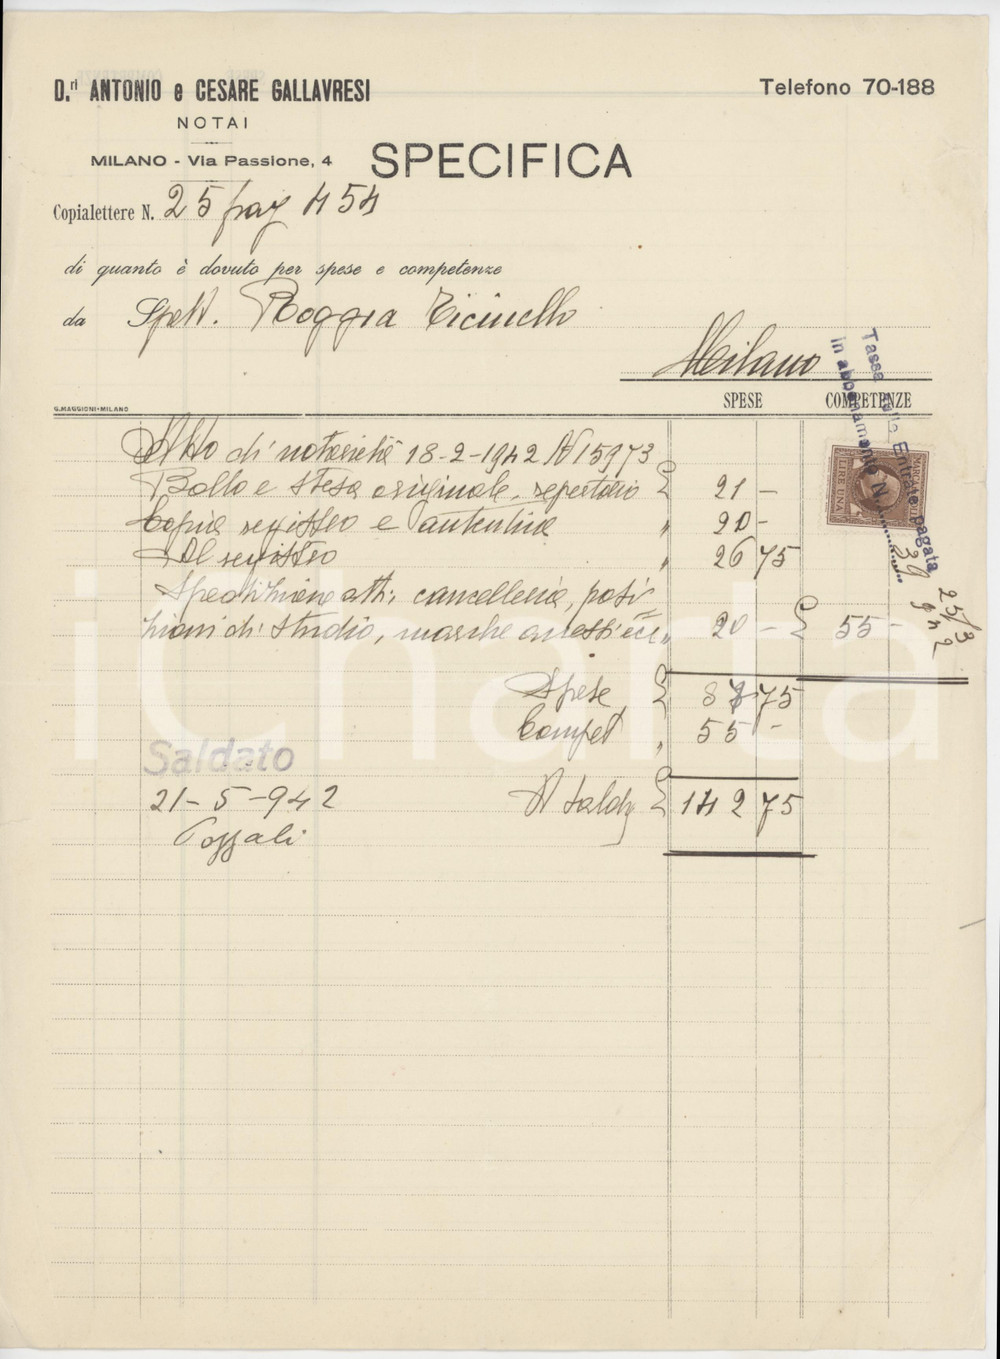 D.ri ANTONIO e CESARE GALLAVRESI
Telefono 70-188
NOTAI
MILANO - Via Passione, 4
SPECIFICA
Copialettere N. 25 pag 454
di quanto è dovuto per spese e competenze
da Spett. Roggia Ticinello
Milano
Tassa sulle Entrate pagata
in abbonamento N. 39
25/3
942
G. MAGGIONI - MILANO
SPESE COMPETENZE
MARCA DA BOLLO
LIRE UNA
Atto di notorietà 18-2-1942 N 15973
Bollo e stesa originale, repertorio £ 21 —
Copia registro e autentica " 20 -
Al registro " 26 75
Spedizione atti, cancelleria, posi
zioni di studio, marche " 20 - £ 55 -
Spese £ 87 75
Compet " 55 -
A saldo £ 142 75
Saldato
21-5-942
Pozzali
icharta